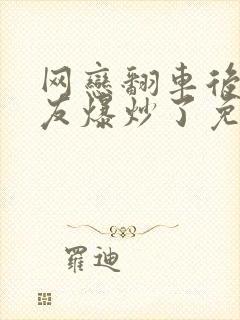 网戀翻車後
友爆炒了
羅迪